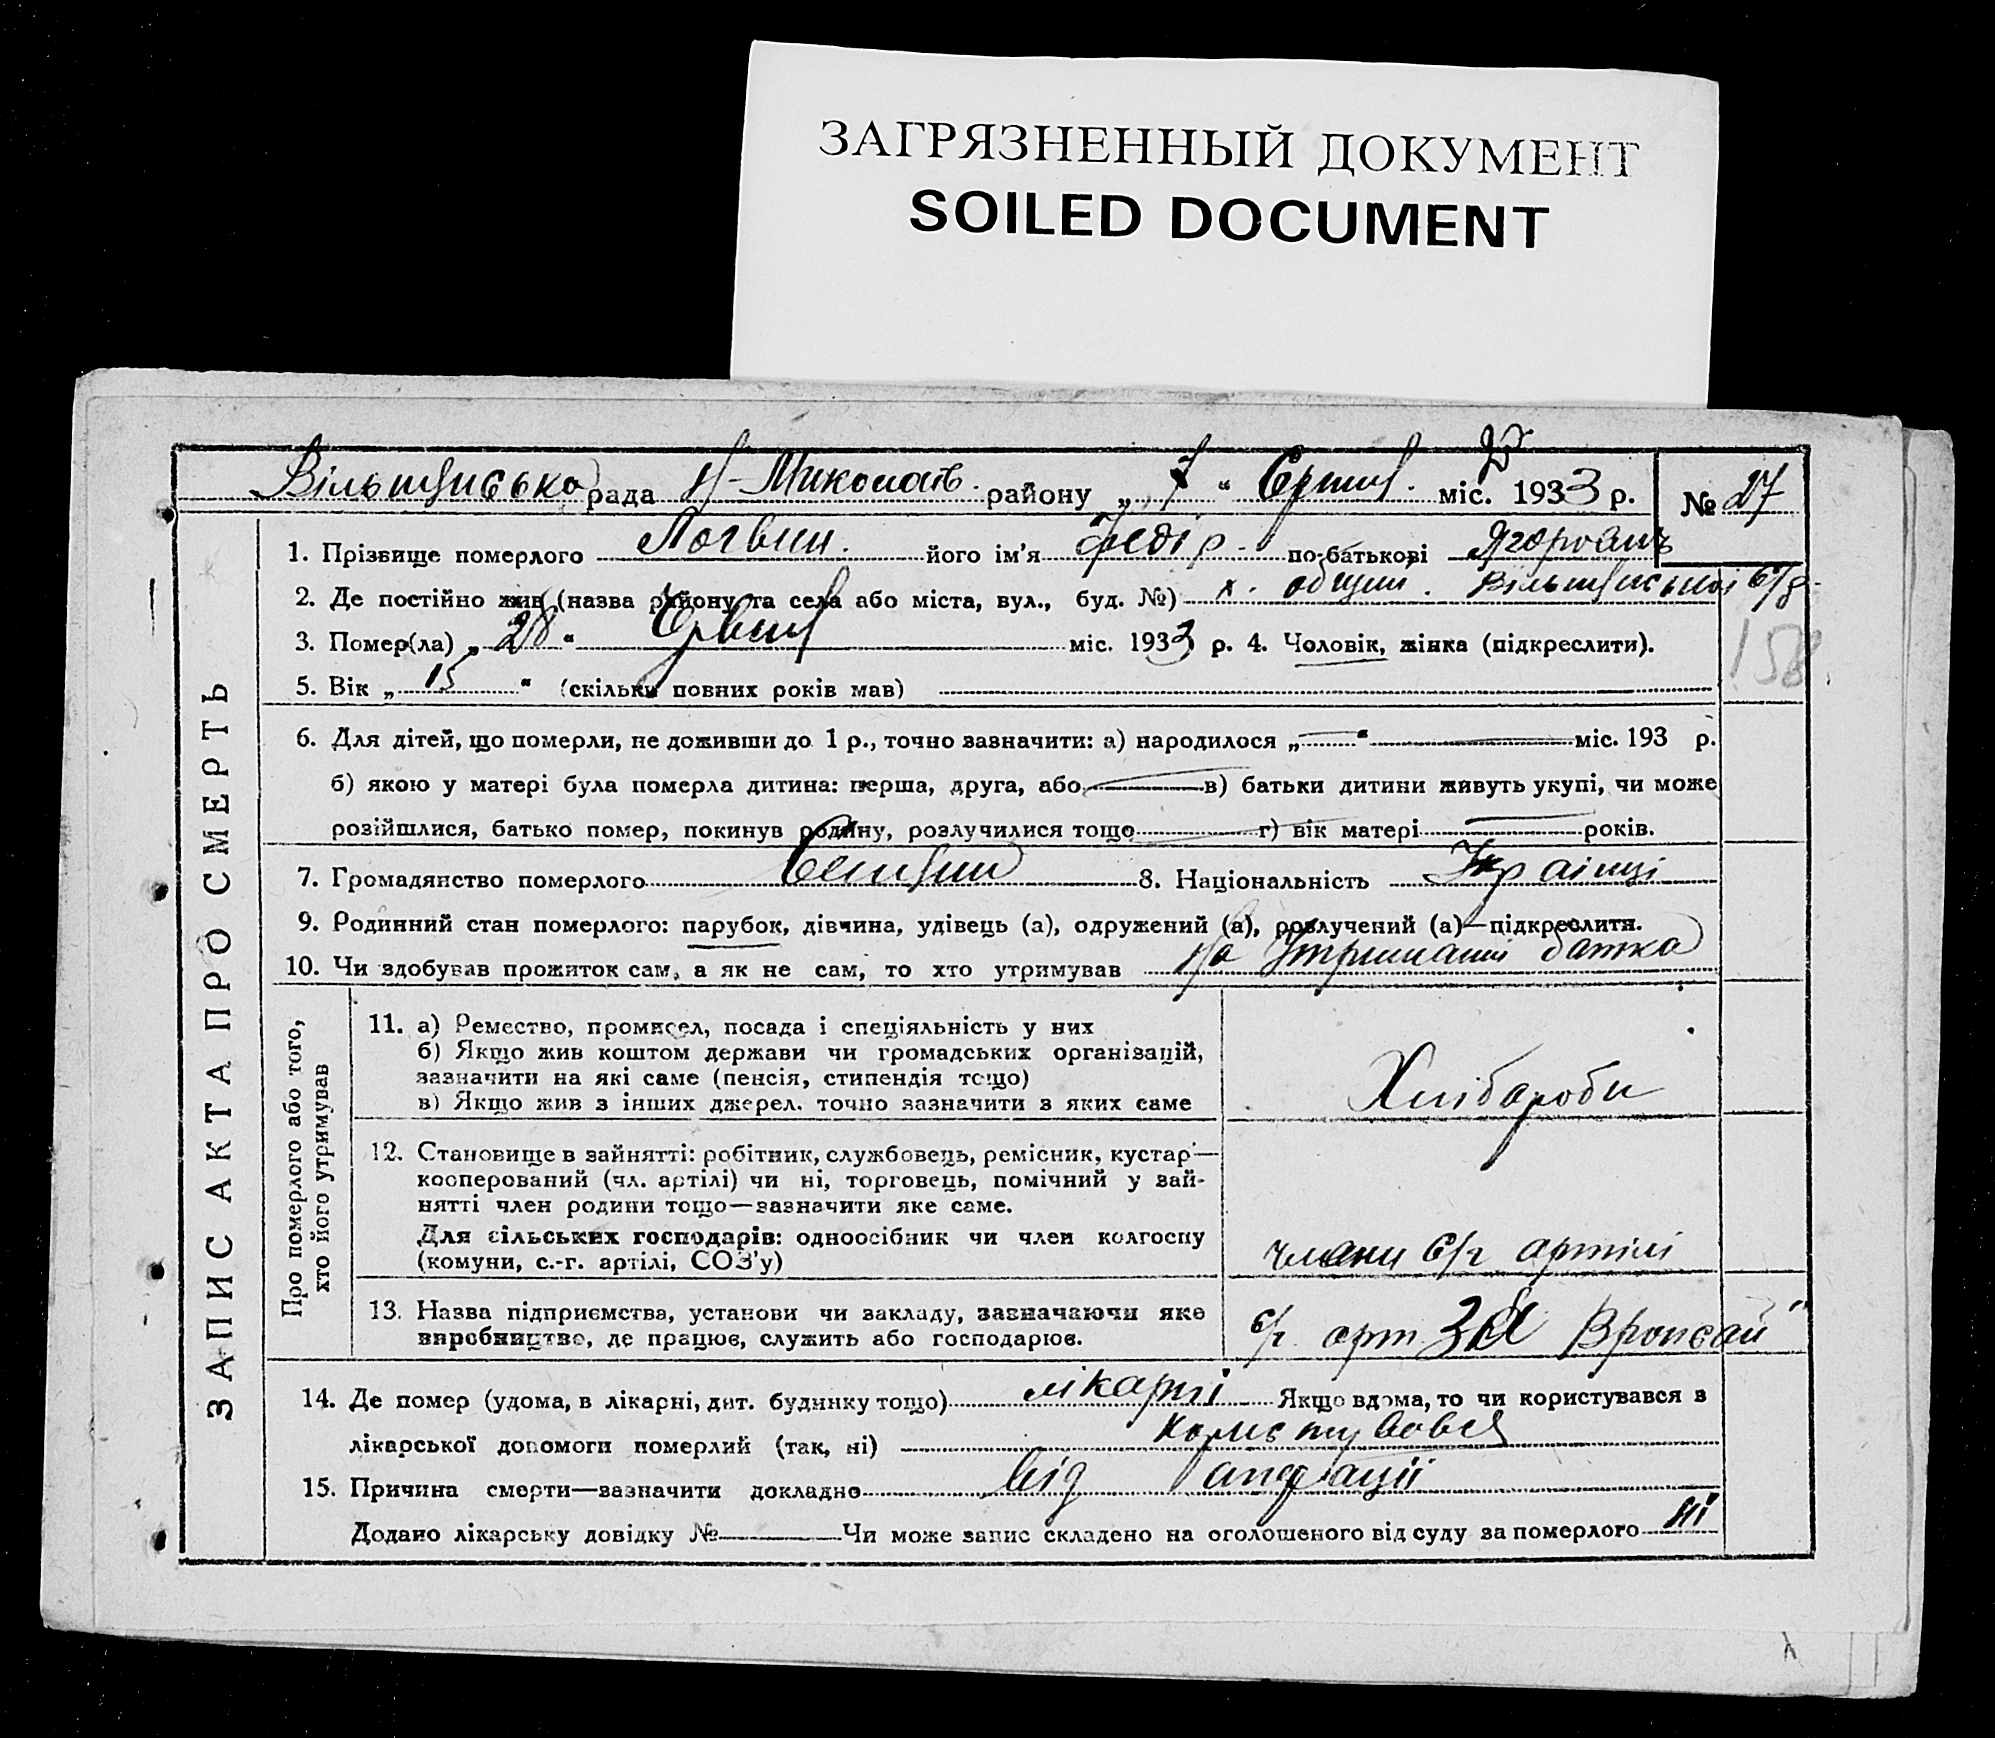 ЗАГРЯЗНЕННЫЙ ДОКУМЕНТ
SOILED DOCUMENT
рада Н-Миколаїв. району „ 7 “ міс. 1933 р. № 27
ЗАПИС АКТА ПРО СМЕРТЬ
1. Прізвище померлого Логвин. його ім'я Федір. по-батькові
2. Де постійно жив (назва району та села або міста, вул., буд. №) х. с/р
3. Помер(ла) „ 28 “ міс. 1933 р. 4. Чоловік, жінка (підкреслити).
158
5. Вік „ 15 “ (скільки повних років мав)
6. Для дітей, що померли, не доживши до 1 р., точно зазначити: а) народилося „ “ міс. 193 р.
б) якою у матері була померла дитина: перша, друга, або в) батьки дитини живуть укупі, чи може
розійшлися, батько помер, покинув родину, розлучилися тощо г) вік матері років.
7. Громадянство померлого 8. Національність Украінці
9. Родинний стан померлого: парубок, дівчина, удівець (а), одружений (а), розлучений (а)—підкреслити.
10. Чи здобував прожиток сам, а як не сам, то хто утримував На утриманні батка
Про померлого або того,
хто його утримував
11. а) Ремество, промисел, посада і спеціяльність у них
б) Якщо жив коштом держави чи громадських організацій,
зазначити на які саме (пенсія, стипендія тощо)
в) Якщо жив з інших джерел. точно зазначити з яких саме
Хлібороби
12. Становище в зайнятті: робітник, службовець, ремісник, кустар—
кооперований (чл. артілі) чи ні, торговець, помічний у зай-
нятті член родини тощо—зазначити яке саме.
Для сільських господарів: одноосібник чи член колгоспу
(комуни, с.-г. артілі, СОЗ'у)
члени с/г артілі
13. Назва підприємства, установи чи закладу, зазначаючи яке
виробництво, де працює, служить або господарює.
с/г арт
14. Де помер (удома, в лікарні, дит. будинку тощо) лікарні Якщо вдома, то чи користувався в
лікарської допомоги померлий (так, ні) користувався
15. Причина смерти—зазначити докладно від
Додано лікарську довідку № Чи може запис складено на оголошеного від суду за померлого ні